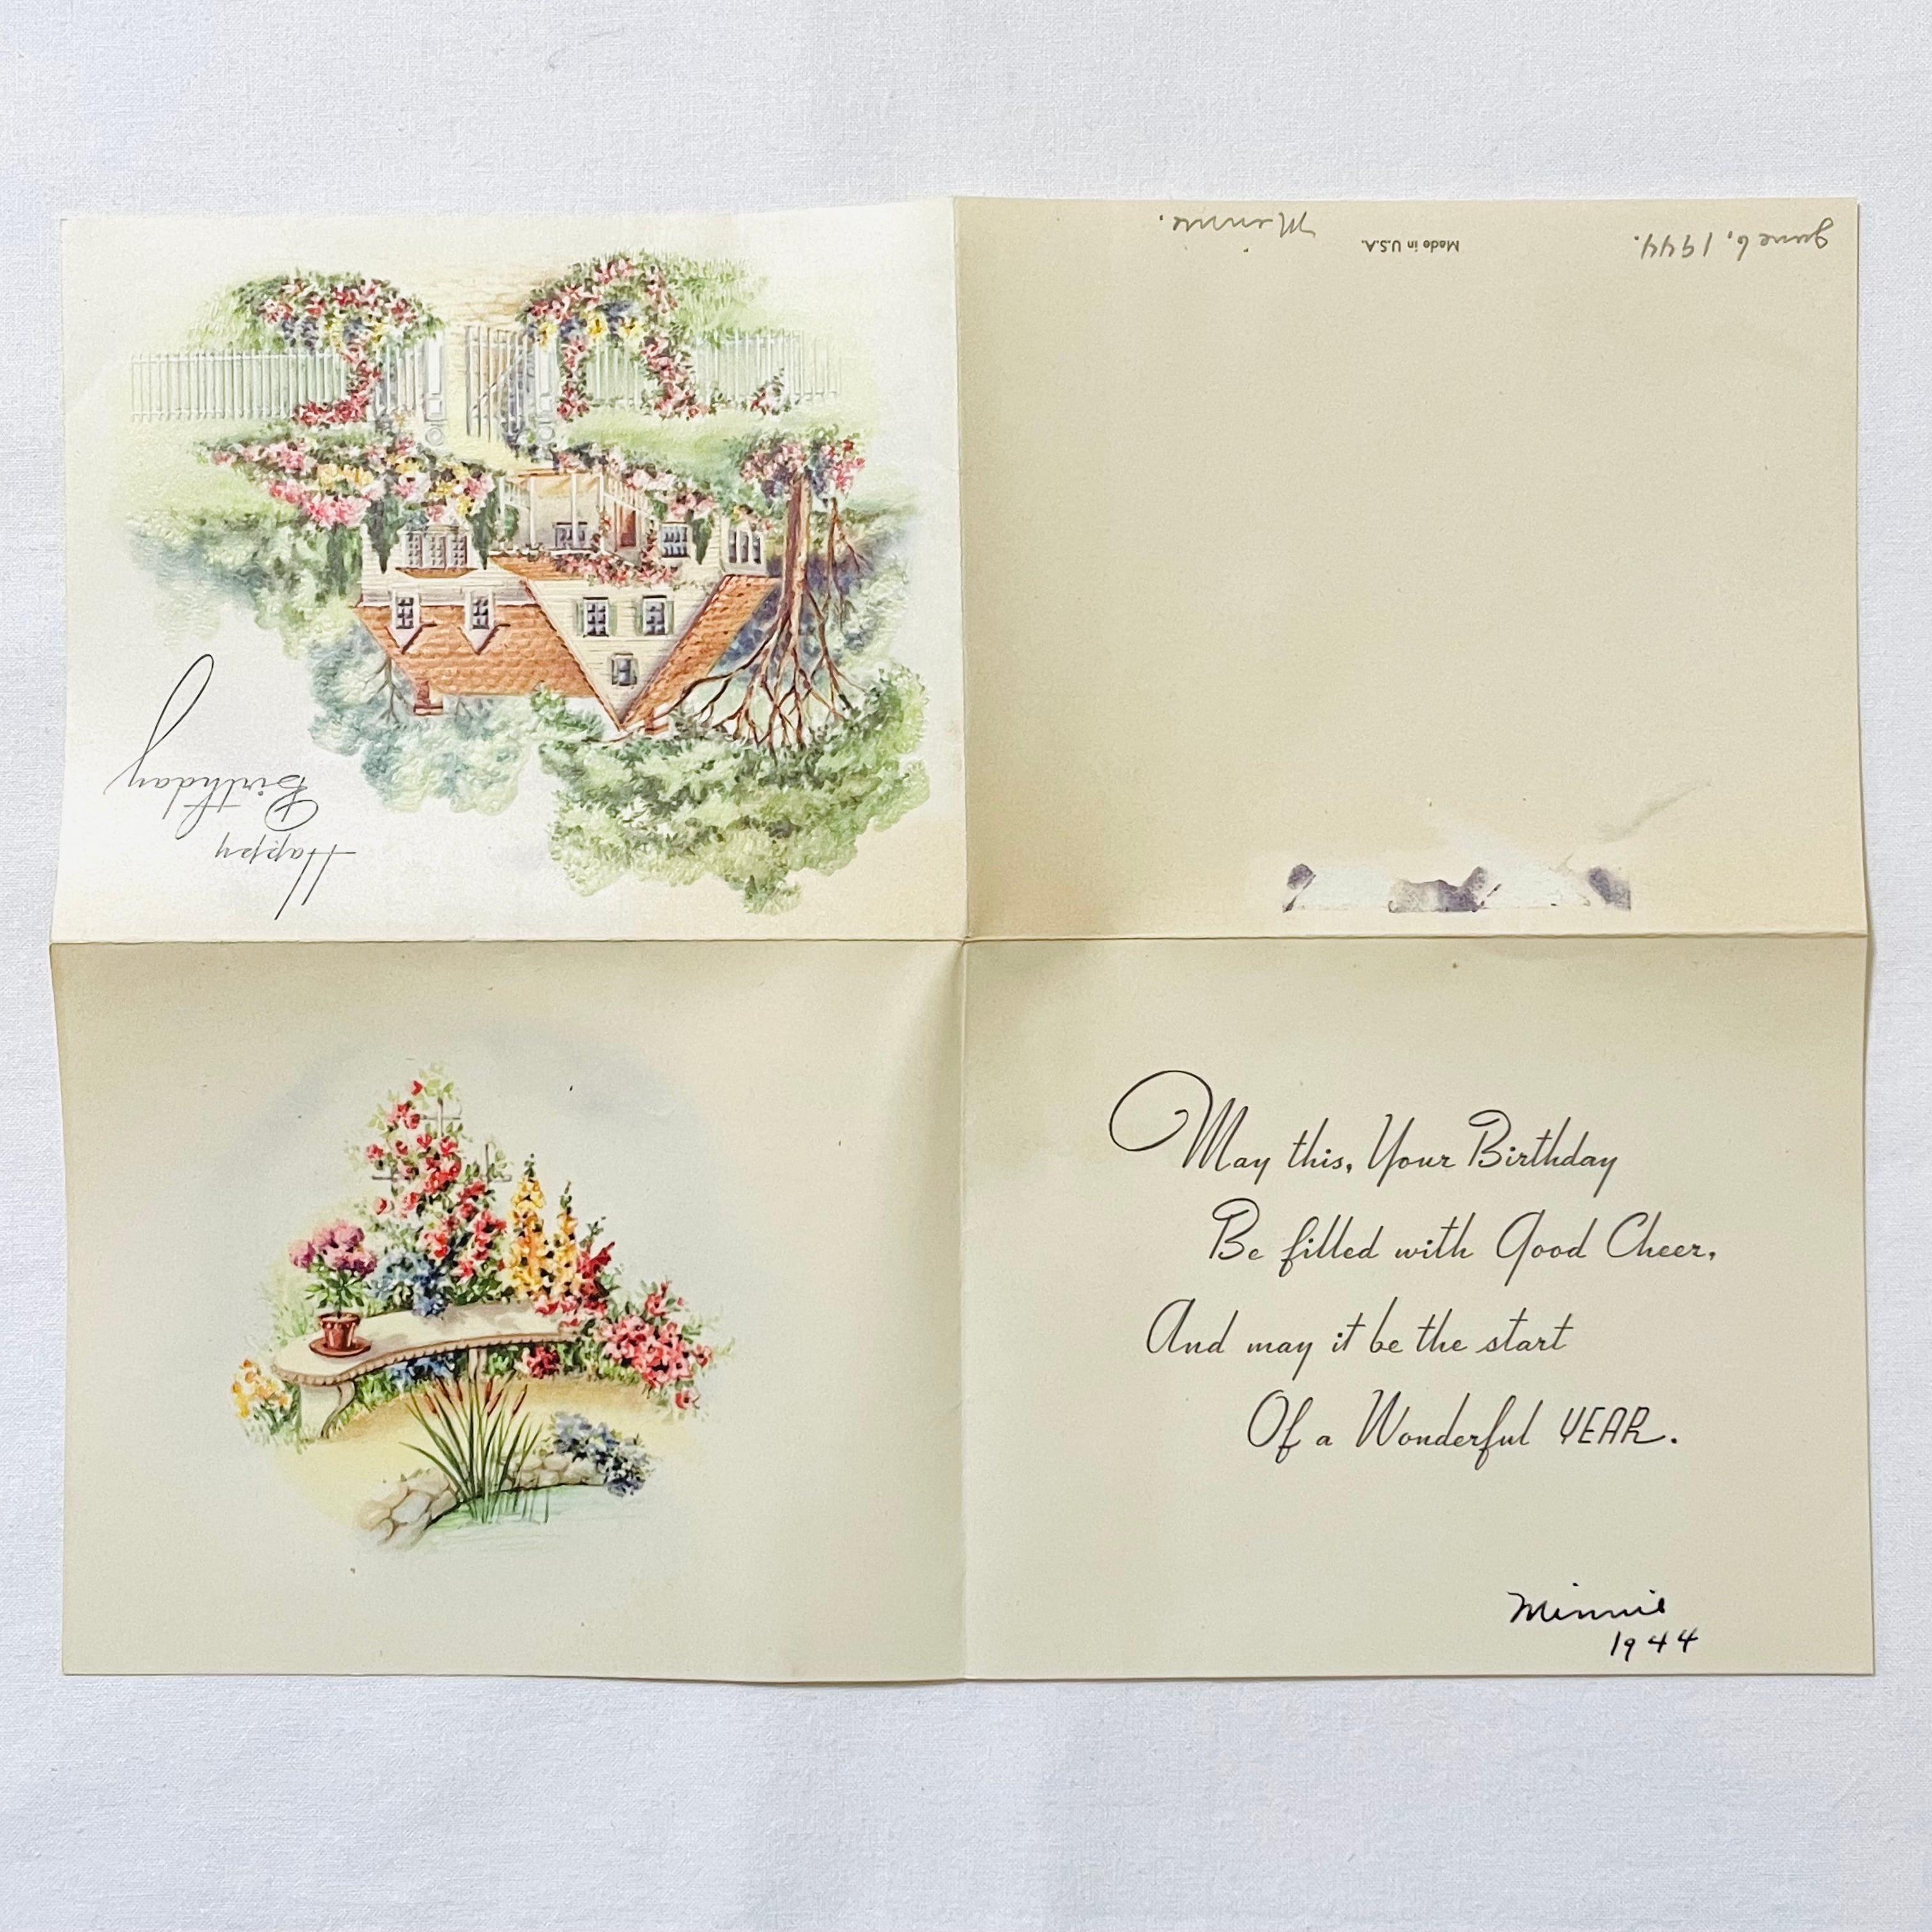 Happy
Birthday
June 6, 1944.
Made in U.S.A.
Minnie.
May this, Your Birthday
Be filled with Good Cheer,
And may it be the start
Of a Wonderful YEAR.
Minnie
1944